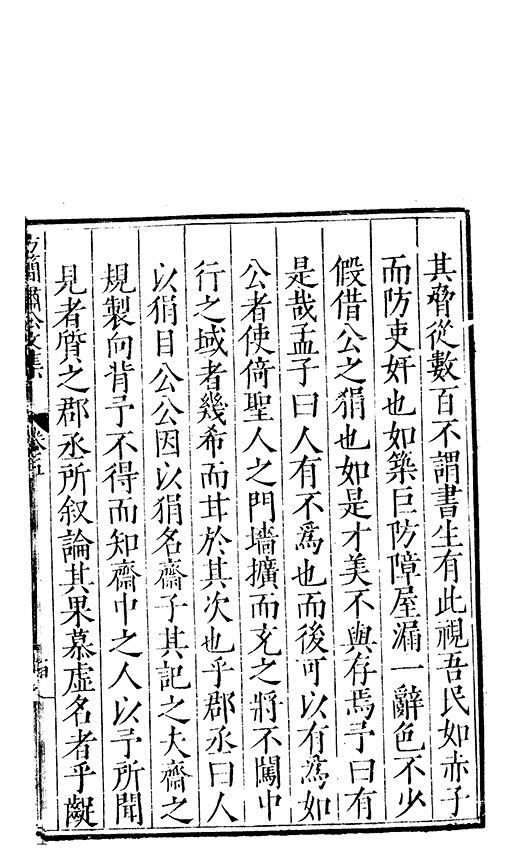 其脅從數百不謂書生有此視吾民如赤子
而防吏奸也如築巨防障屋漏一辭色不少
假借公之狷也如是才美不與存焉予曰有
是哉孟子曰人有不爲也而後可以有爲如
公者使倚聖人之門墻擴而充之將不闖中
行之域者幾希而茸於其次也乎郡丞曰人
以狷目公公因以狷名齋子其記之夫齋之
規製向背予不得而知齋中之人以予所聞
見者質之郡丞所叙論其果慕虛名者乎齪
方簡肅公文集
卷之五